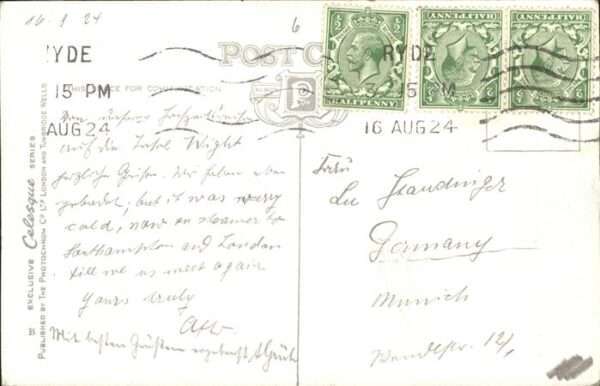 16. 8. 24
6
RYDE
15 PM
AUG 24
RYDE
15 PM
16 AUG 24
HALFPENNY
HALFPENNY
HALFPENNY
POST C
THIS SPACE FOR COMMUNICATION
Von unserer Hochzeitsreise
auf die Insel Wight
herzliche Grüße. Wir haben
gebadet, but it was very
cold, now on steamer to
Southampton and London
till we us meet again
Yours truly
Mit besten Grüßen
Frau
Germany
Munich
EXCLUSIVE Celesque SERIES
PUBLISHED BY THE PHOTOCHROM CO. LTD. LONDON AND TUNBRIDGE WELLS